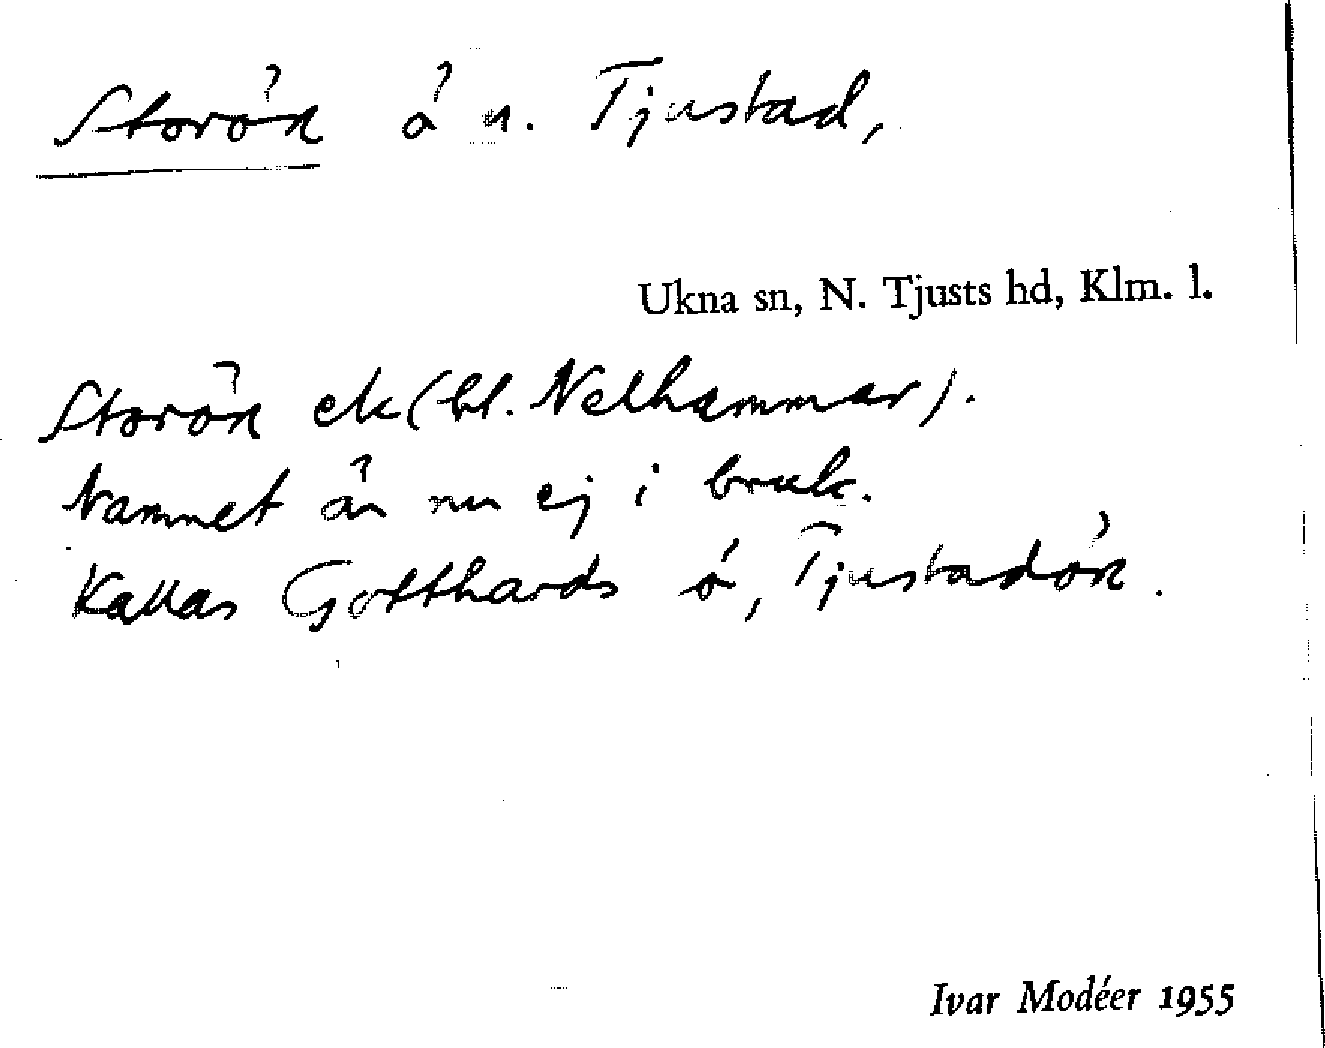 Storön ö n. Tjustad,
Ukna sn, N. Tjusts hd, Klm. l.
Storön ek (bl. Nelhammar).
Namnet är nu ej i bruk.
Kallas Gotthards ö, Tjustadön.
Ivar Modéer 1955